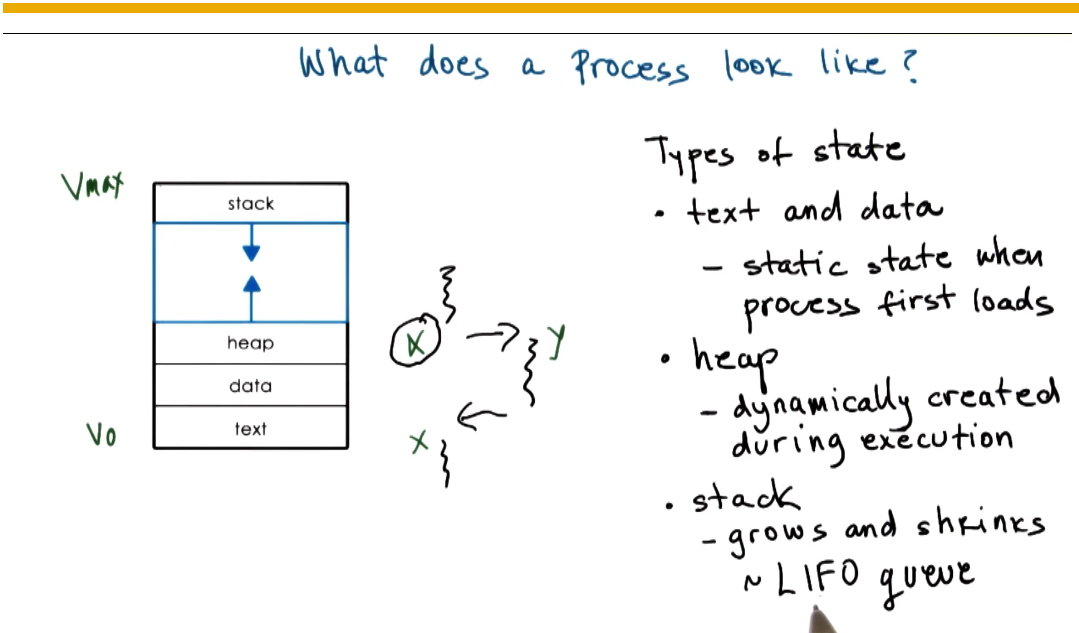 What does a Process look like?
Vmax
stack
heap
data
text
V0
X
y
X
Types of state
• text and data
- static state when
process first loads
• heap
- dynamically created
during execution
• stack
- grows and shrinks
~ LIFO queue